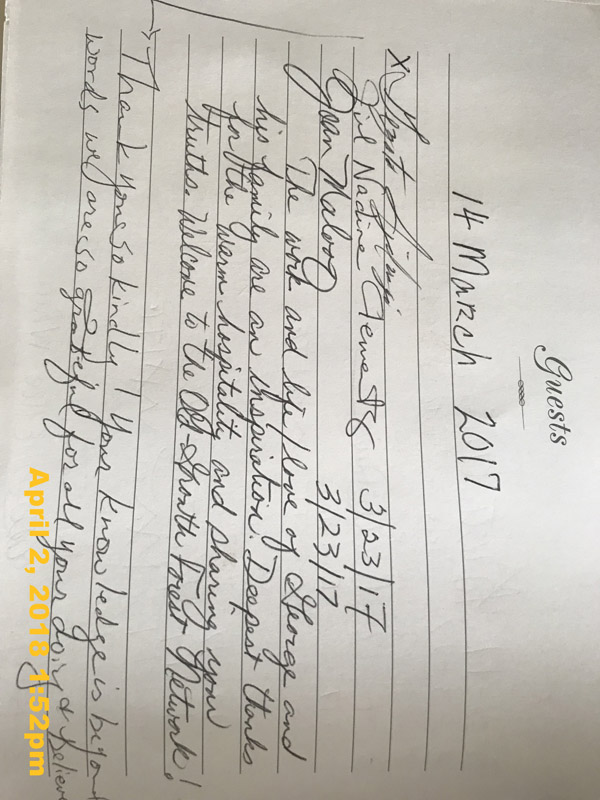 Guests
14 March 2017
x
Jill Nadine Clements 3/23/17
Joan Maloof 3/23/17
The work and life/love of George and
his family are an inspiration. Deepest thanks
for the warm hospitality and sharing your
truths. Welcome to the Old-Growth Forest Network!
→ Thank you so kindly! Your knowledge is beyond
words, we are so grateful for all your doing & believe
April 2, 2018 1:52pm